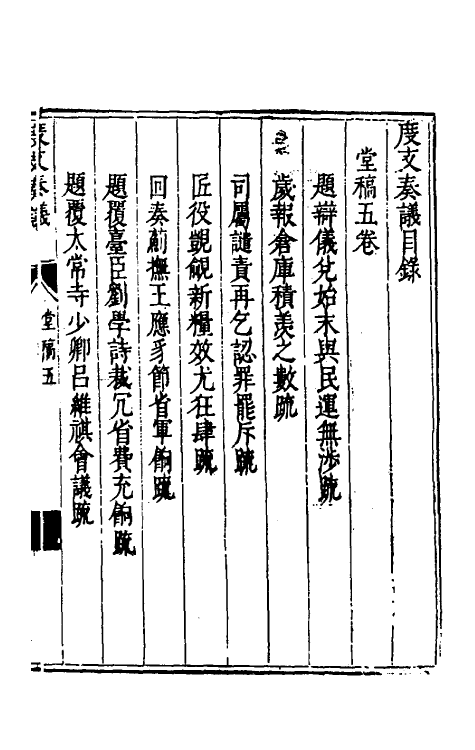 度支奏議目錄
堂稿五卷
題辯儀兌始末與民運無涉疏
歲報倉庫積羨之數疏
司屬譴責再乞認罪罷斥疏
匠役覬覦新糧效尤狂肆疏
回奏薊撫王應豸節省軍餉疏
題覆臺臣劉學詩裁冗省費充餉疏
題覆太常寺少卿呂維祺會議疏
度支奏議
堂稿五